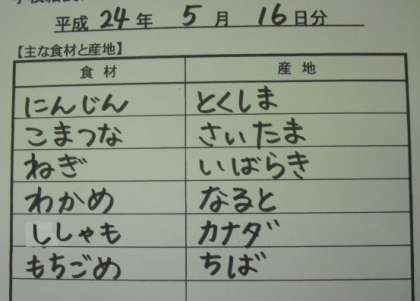 平成 24 年 5 月 16 日分
【主な食材と産地】
食材 産地
にんじん とくしま
こまつな さいたま
ねぎ いばらき
わかめ なると
ししゃも カナダ
もちごめ ちば